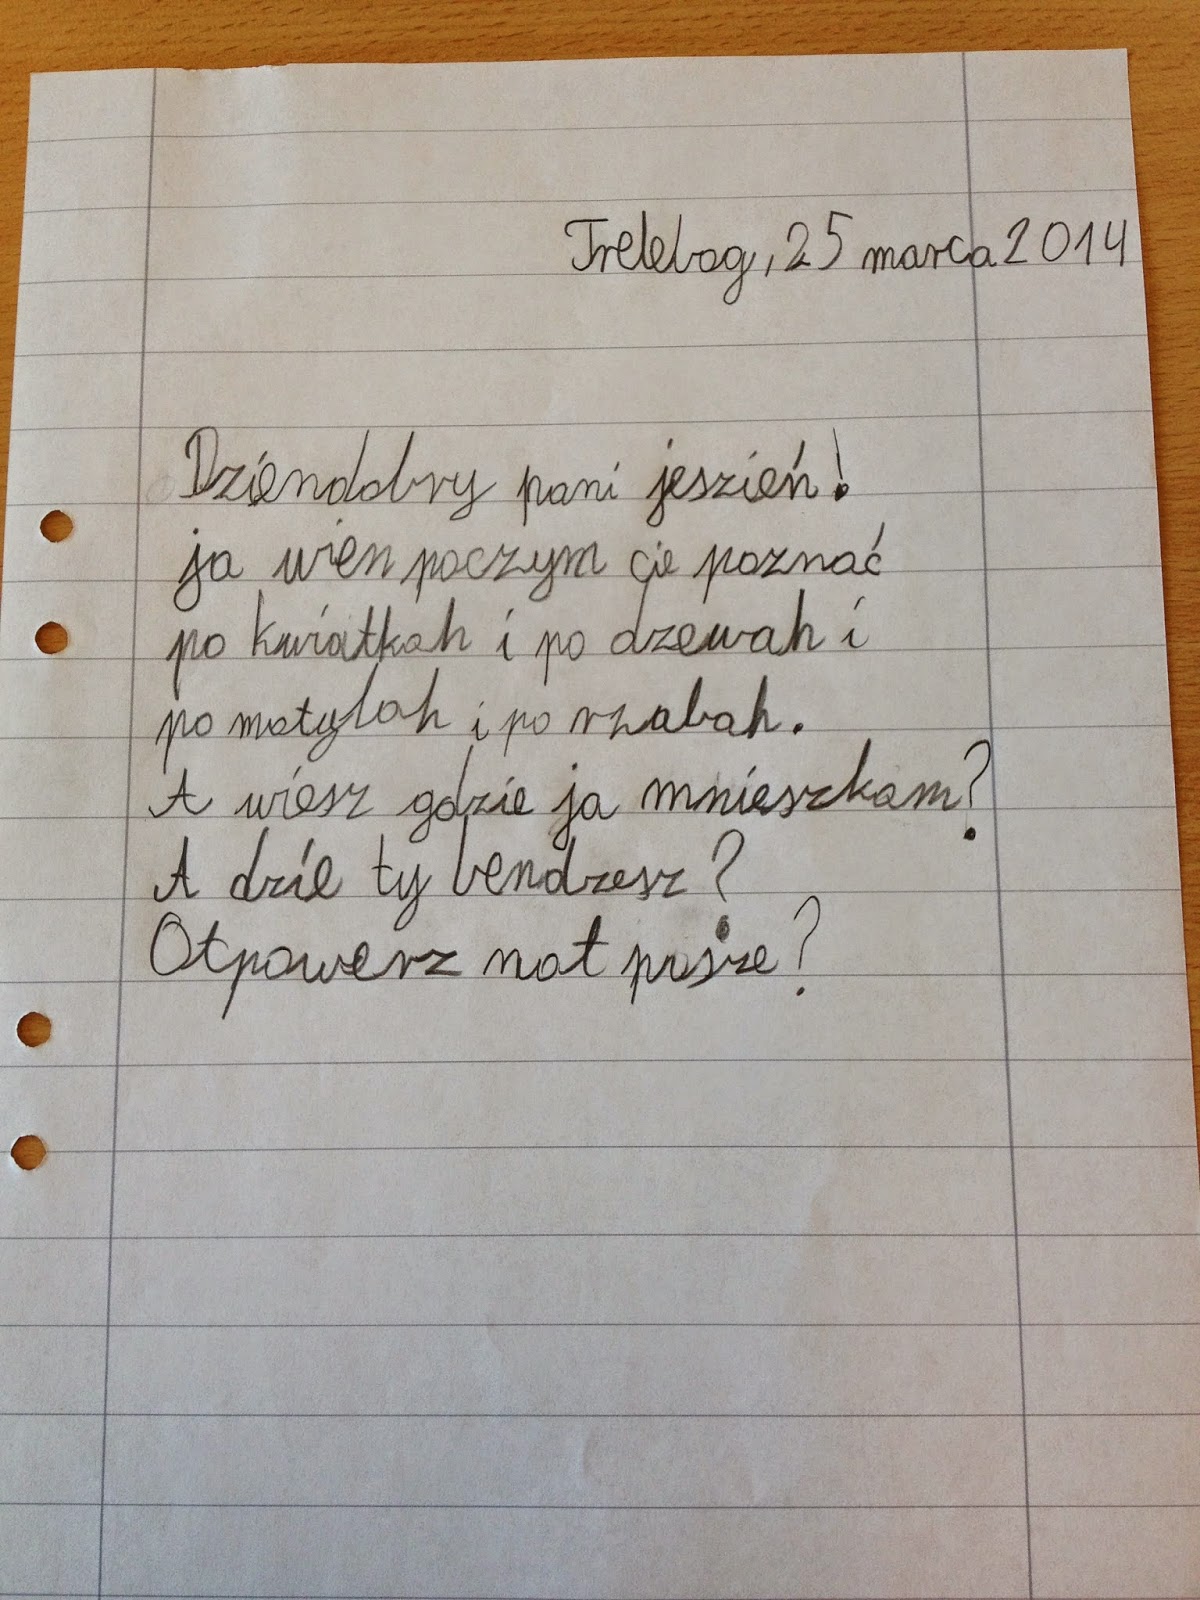 Trelebog, 25 marca 2014
Dziendobry pani jeszień!
ja wien poczym cie poznać
po kwiatkah i po dzewah i
po motylah i po rzabah.
A wiesz gdzie ja mnieszkam?
A dzie ty bendzesz?
Otpowerz nat prosze?